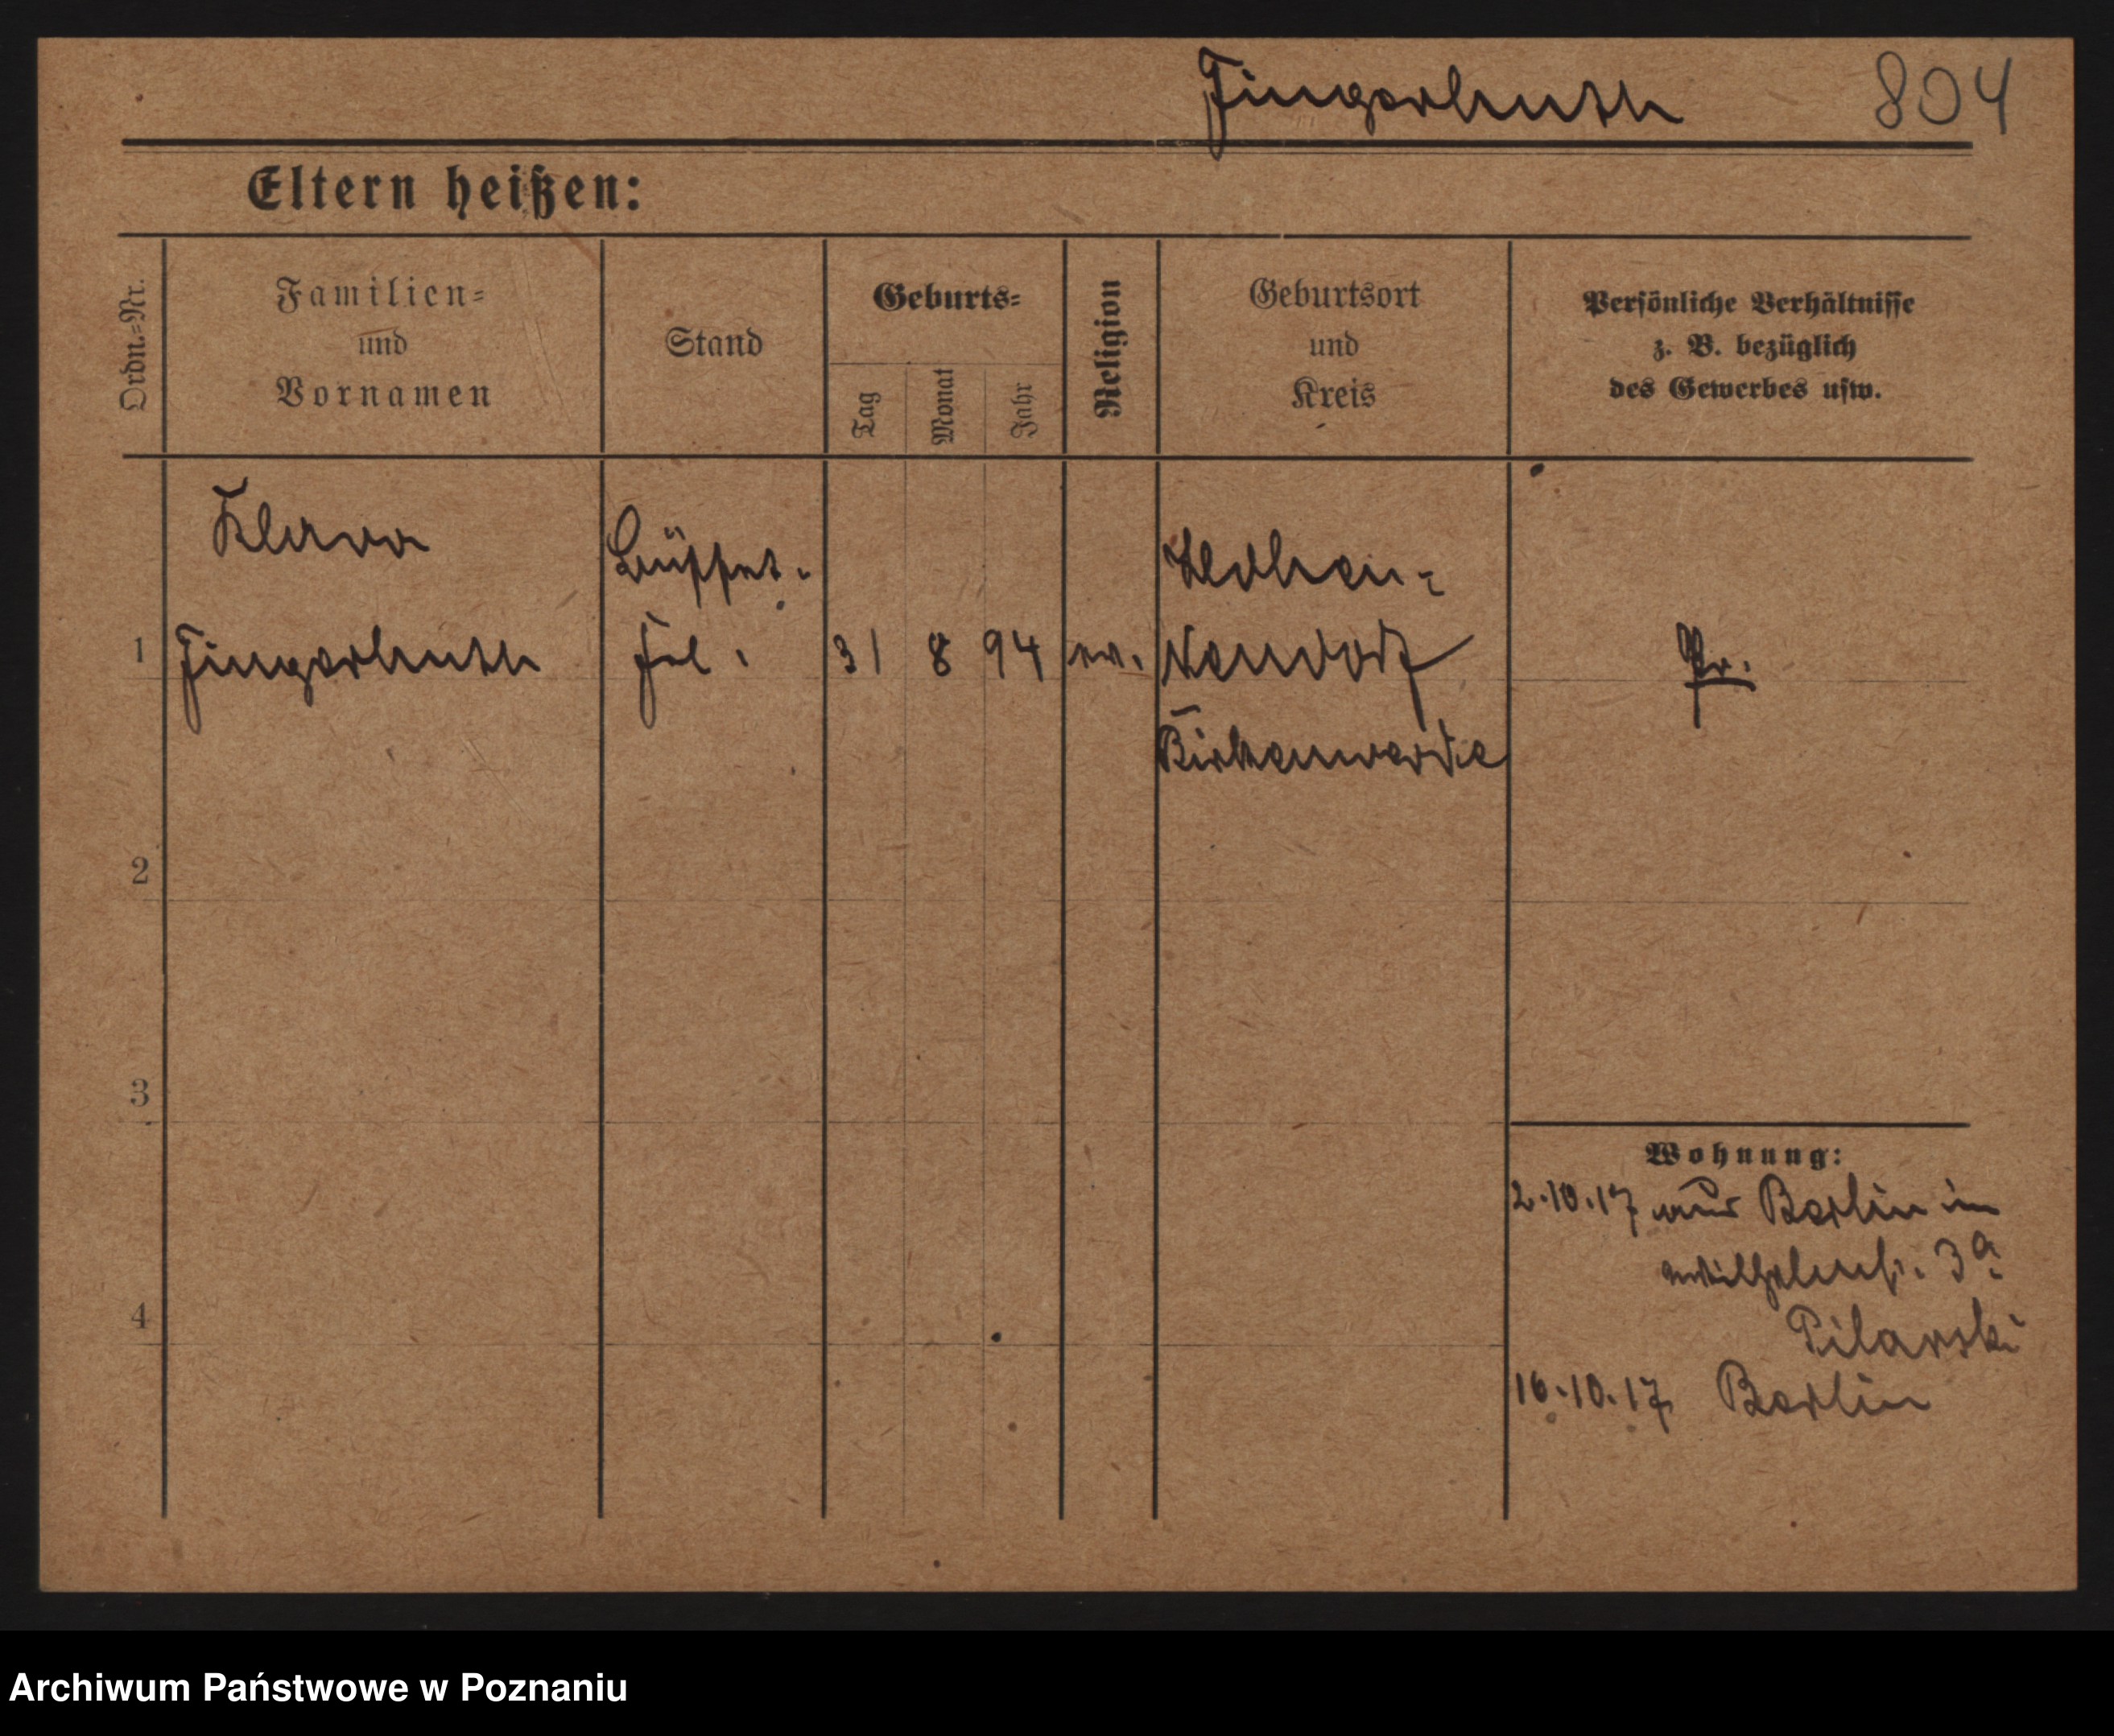 Fingerhuth 804
Eltern heißen:
Ordn.-Nr.
Familien-
und
Vornamen
Stand
Geburts-
Tag
Monat
Jahr
Religion
Geburtsort
und
Kreis
Persönliche Verhältnisse
z. B. bezüglich
des Gewerbes usw.
Klara
Büffet-
Hohen-
1 Fingerhuth frl. 31 8 94 ev. Neuendorf Pr.
Birkenwerder
2
3
4
Wohnung:
2.10.17 aus Berlin in
3a
Pilarski
16.10.17 Berlin
Archiwum Państwowe w Poznaniu